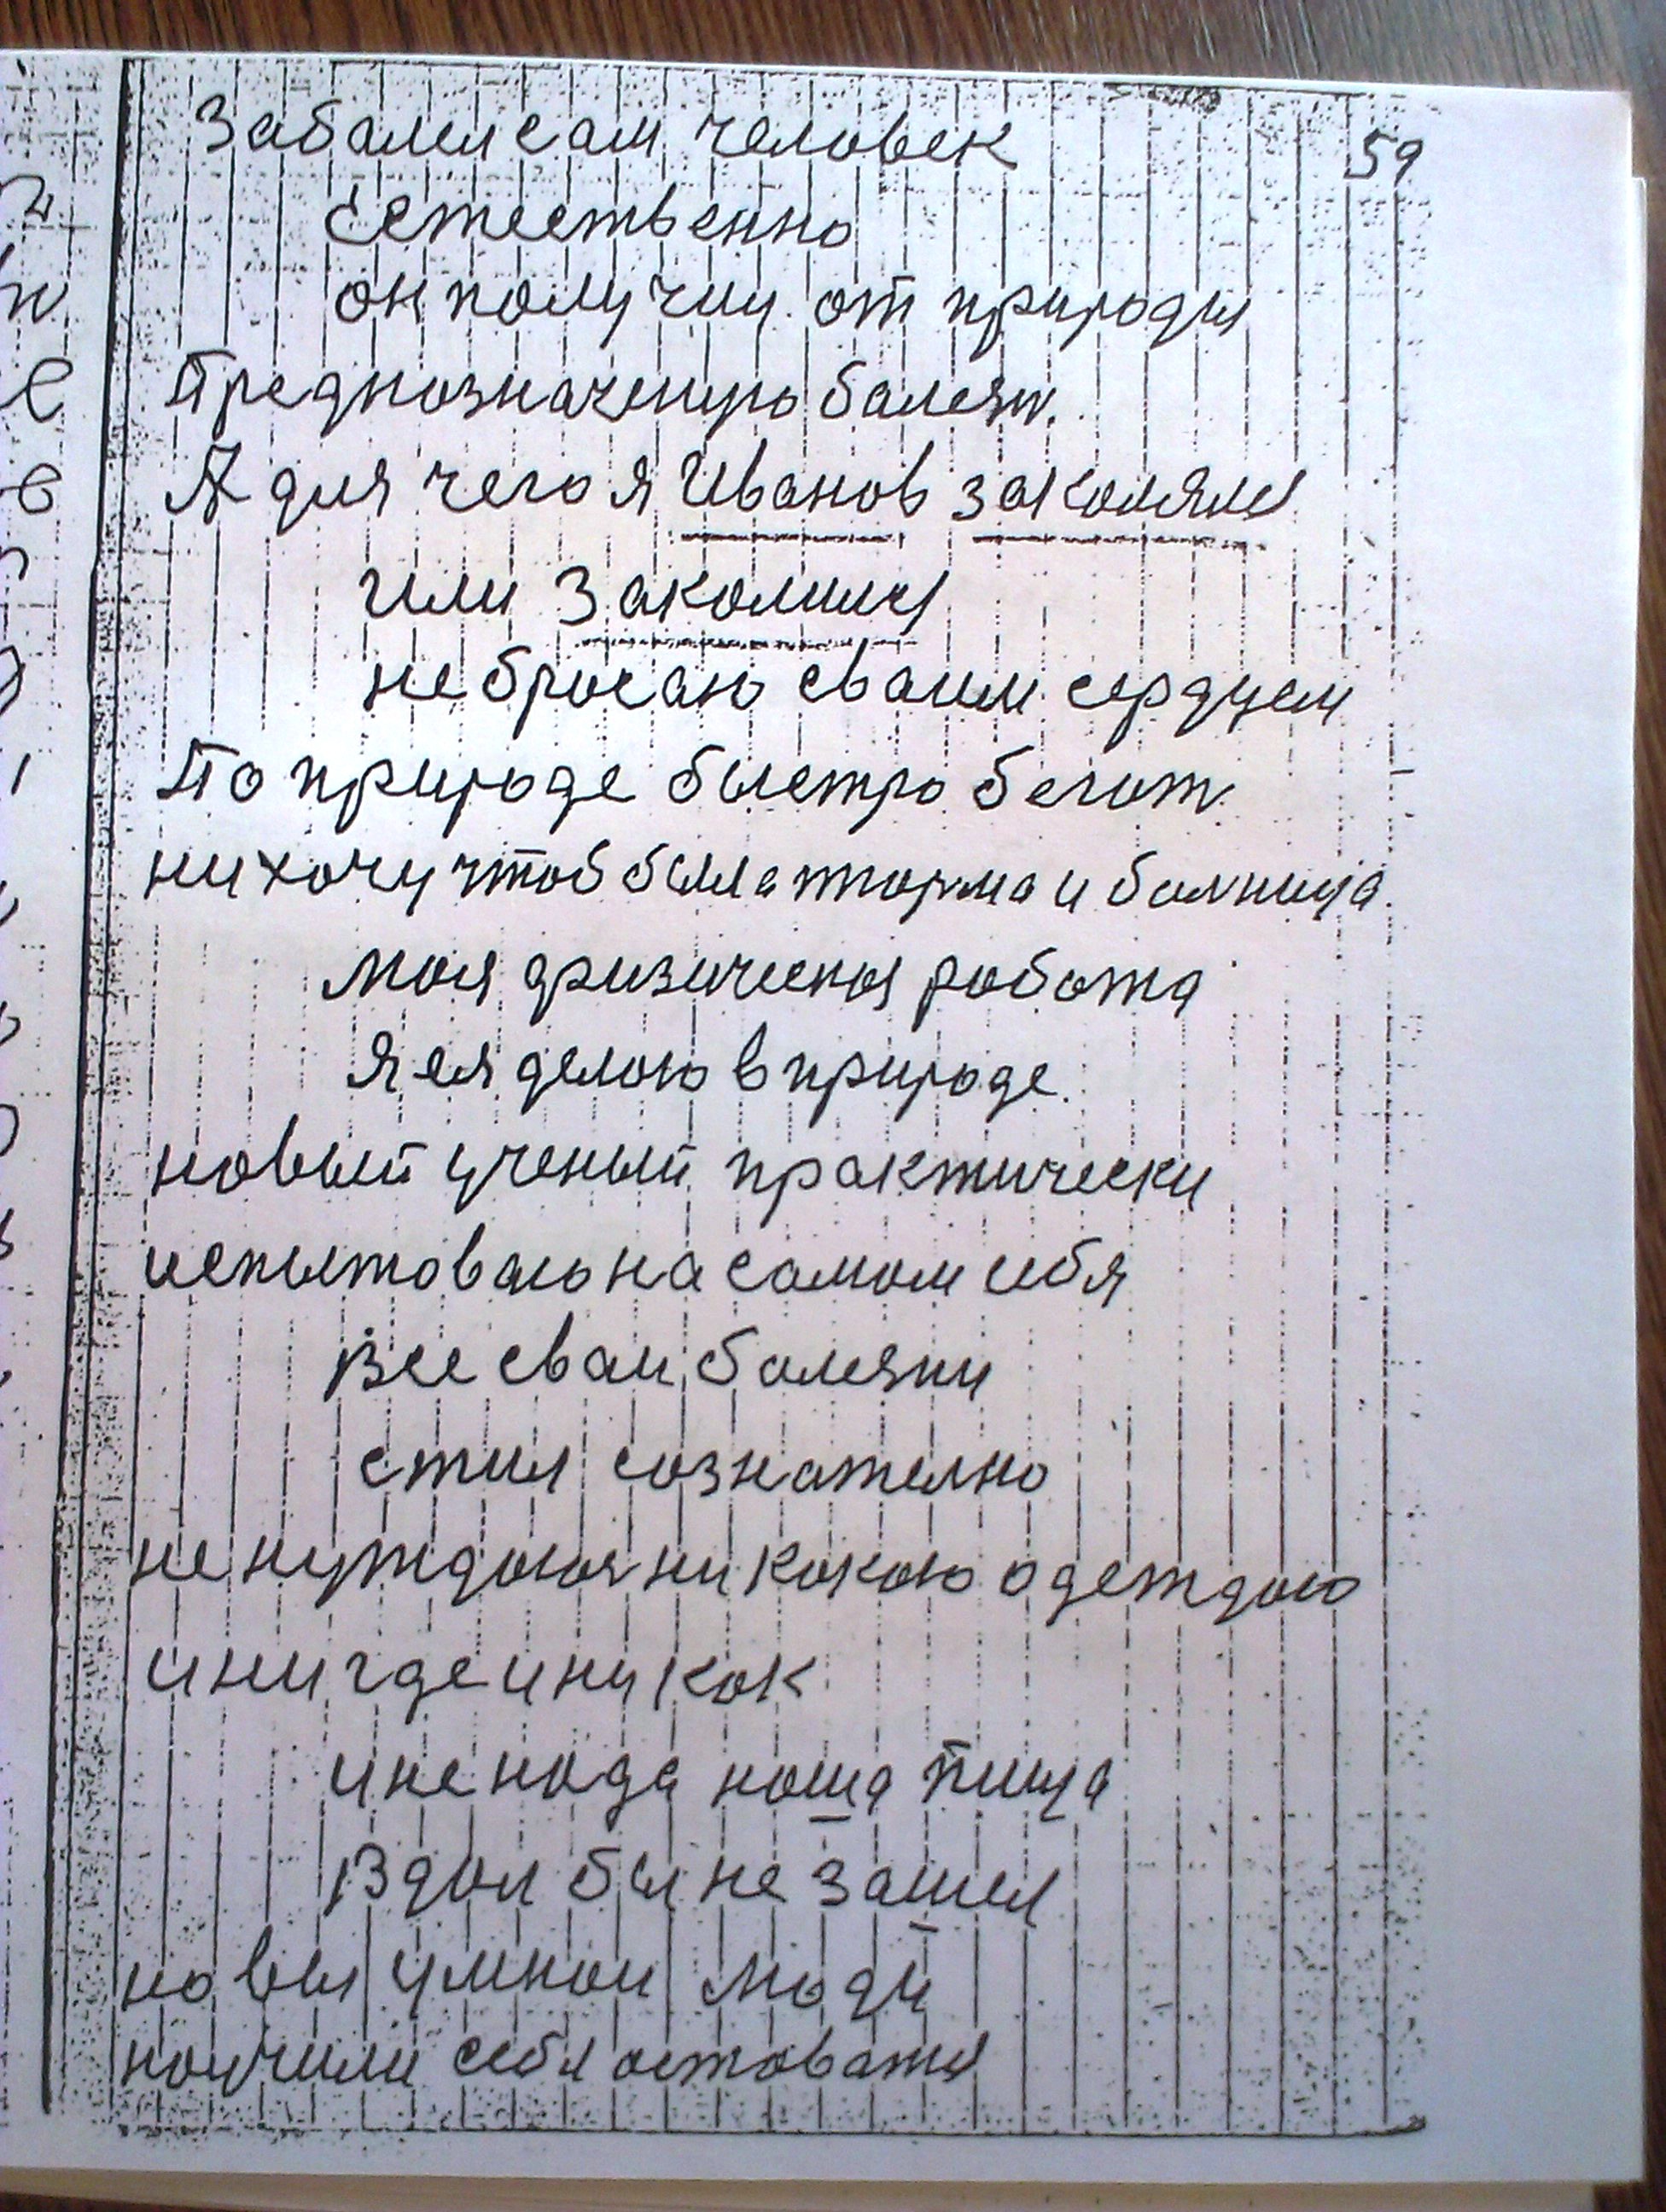 Забалел сам человек
59
Естественно
он получил от природы
Преднозначеную балезн.
А для чего я Иванов закалялся
Или Закалилсы
не бросаю сваим сердцем
По природе быстро бегат.
ни хочу чтоб была тюрма и болница.
моя физическая робота
Я ея делою в природе.
новый ученый практически
испытоваю на самом себя
Все сваи балезни
стил сознателно
не нуждоюся ни какою одеждою
и ни где и ни кок
и не нада ноша пища
В дом бы не зашел
но вы умнои люди
ноучили себя оставатся